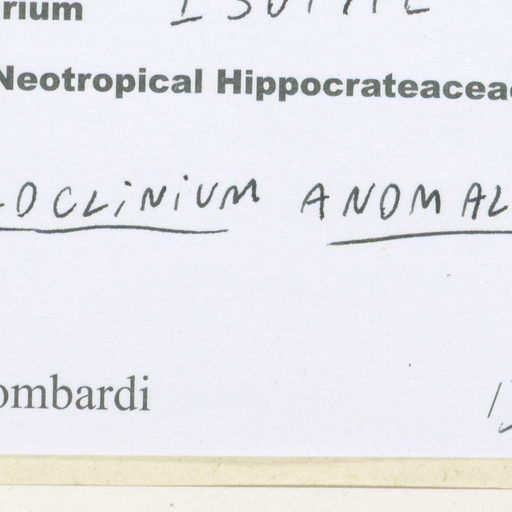 rium
Neotropical Hippocrateaceae
LOCLINIUM ANOMAL
ombardi